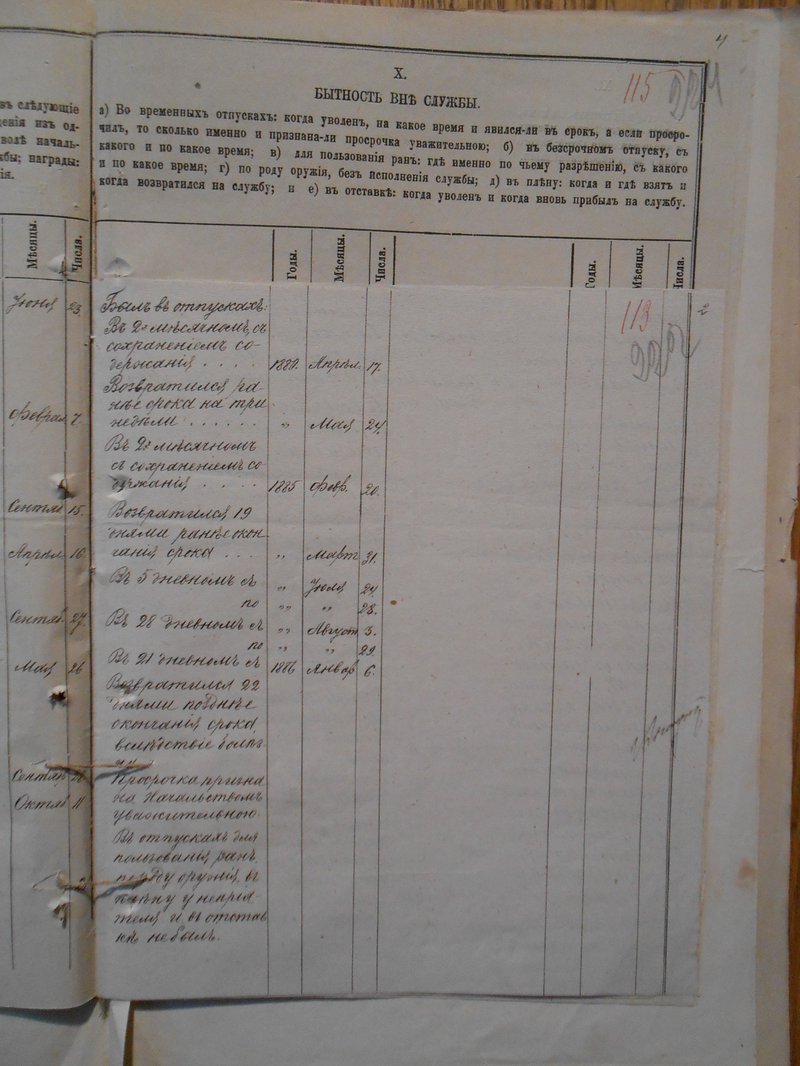 4
X.
115
БЫТНОСТЬ ВНѢ СЛУЖБЫ.
а) Во временныхъ отпускахъ: когда уволенъ, на какое время и явился-ли въ срокъ, а если просро-
чилъ, то сколько именно и признана-ли просрочка уважительною; б) въ безсрочномъ отпуску, съ
какого и по какое время; в) для пользованія ранъ: гдѣ именно по чьему разрѣшенію, съ какого
и по какое время; г) по роду оружія, безъ исполненія службы; д) въ плѣну: когда и гдѣ взятъ и
когда возвратился на службу; и е) въ отставкѣ: когда уволенъ и когда вновь прибылъ на службу.
въ слѣдующіе
ченія изъ од-
волѣ началь-
жбы; награды:
нія.
Мѣсяцы. Числа.
Годы. Мѣсяцы. Числа. Годы. Мѣсяцы. Числа.
Іюня 23.
Феврал 7.
Сентяб 15.
Апрѣл 16.
Сентяб 27.
Мая 26
Сентяб
Октяб 11
113
2
Былъ въ отпускахъ:
Въ 2х мѣсячномъ, съ
сохраненіемъ со-
держанія . . . . 1882. Апрѣл. 17.
Возвратился ра-
нѣе срока на три
недѣли . . . . . . „ Мая 24.
Въ 2х мѣсячномъ
съ сохраненіемъ со
держанія . . . . 1885 Февр. 20.
Возвратился 19
днями ранѣе окон-
чанія срока . . . „ Март. 31.
Въ 5 дневномъ съ „ Іюля 24.
по „ „ 28.
Въ 28 дневномъ съ „ Август. 3.
по „ „ 29
Въ 21 дневномъ съ 1886 Январ 6.
Возвратился 22
днями позднѣе
окончанія срока
вслѣдствіе болѣз-
ни
Просрочка призна
на Начальствомъ
уважительною.
Въ отпускахъ для
пользованія ранъ,
по роду оружія, въ
плѣну у непрія
теля и въ отстав
кѣ не былъ.